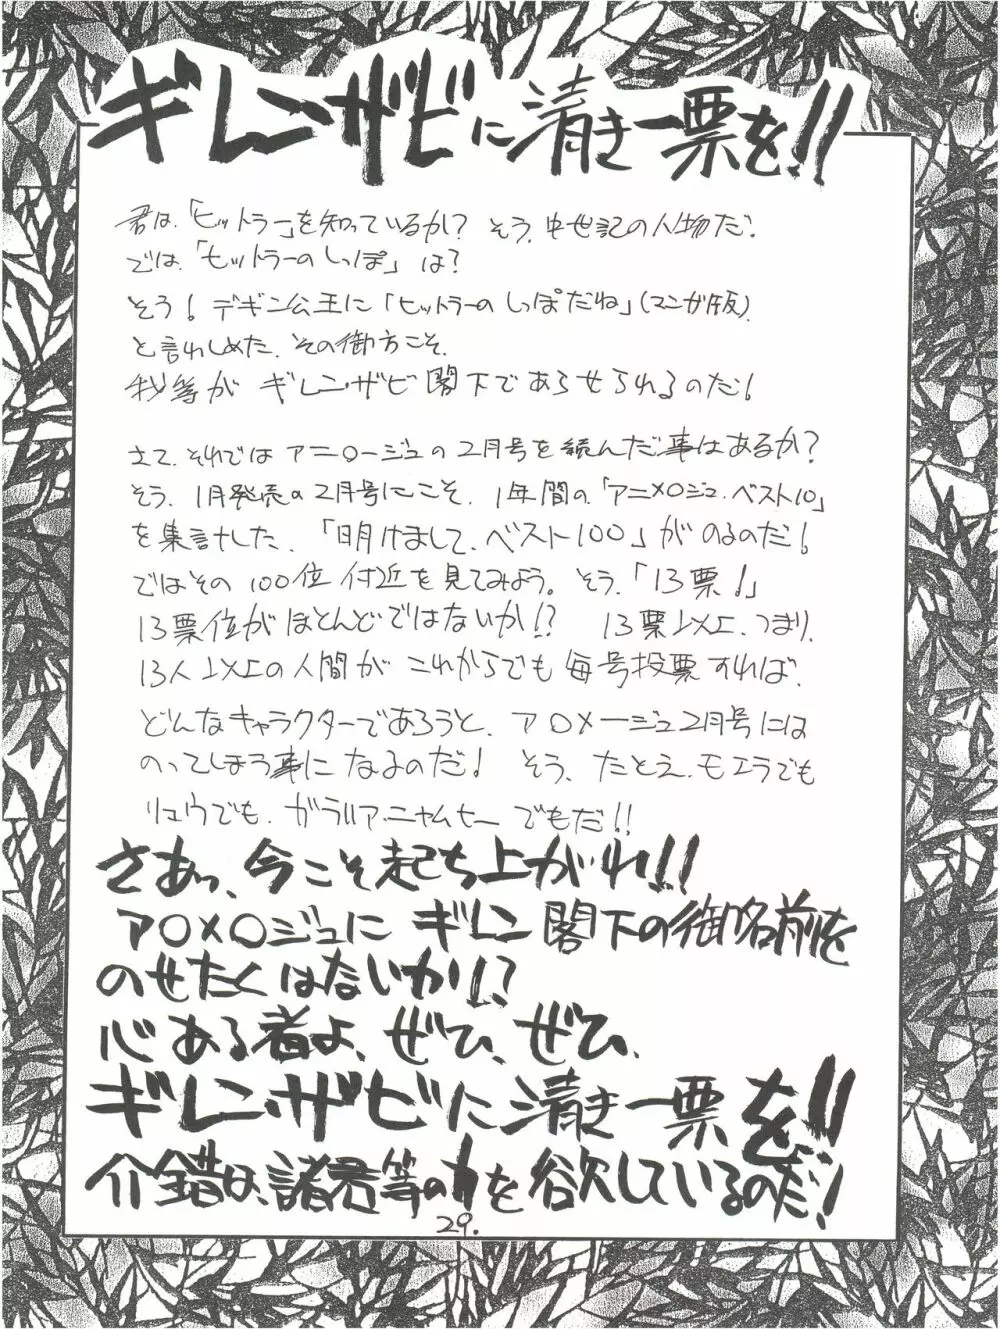 ギレン・ザビに清き一票を!!
君は、「ヒットラー」を知っているか? そう、中世記の人物だ。
では、「ヒットラーのしっぽ」は?
そう! デギン公王に「ヒットラーのしっぽだね」(マンガ版)
と言わしめた、その御方こそ、
我等が ギレン・ザビ閣下であらせられるのだ!
さて、それでは アニ○ージュの2月号を読んだ事はあるか?
そう、1月発売の2月号にこそ、1年間の「アニメ○ジュ・ベスト10」
を集計した、「明けまして、ベスト100」がのるのだ!
ではその100位付近を見てみよう。そう、「13票!」
13票位がほとんどではないか!? 13票以上、つまり、
13人以上の人間が これからでも毎号投票すれば、
どんなキャラクターであろうと、ア○メージュ2月号には
のってしまう事になるのだ! そう、たとえ、モエラでも
リュウでも、ガラリア・ニャムヒー でもだ!!
さあっ、今こそ起ち上がれ!!
ア○メ○ジュに ギレン閣下の御名前を
のせたくはないか!?
心ある者よ、ぜひ、ぜひ、
ギレン・ザビに清き一票を!!
介錯は、諸君等の力を欲しているのだ!
29.